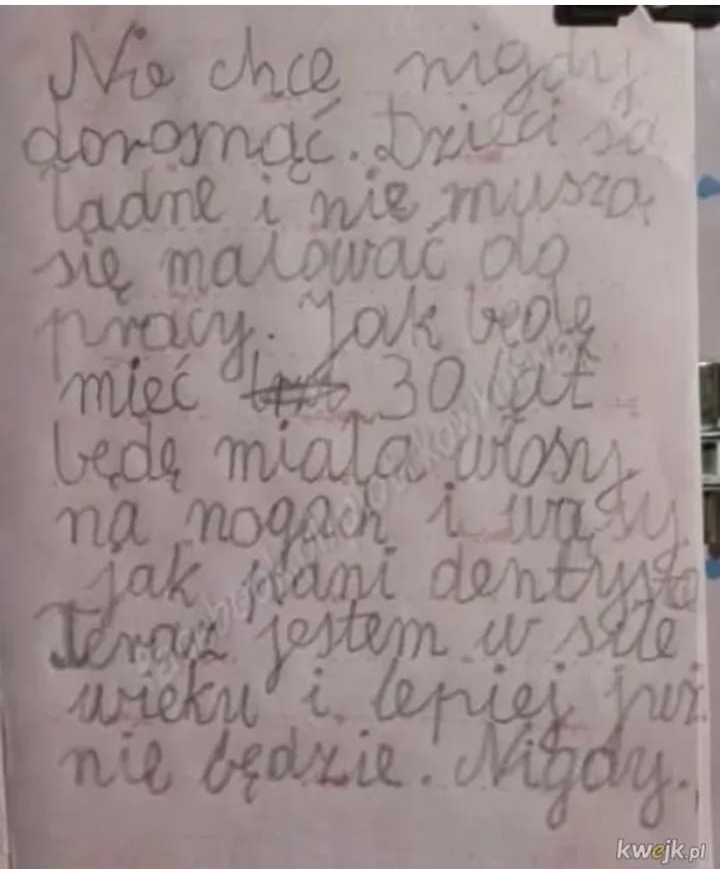 Nie chcę nigdy
dorosnąć. Dzieci są
ładne i nie muszą
się malować do
pracy. Jak będę
mieć 30 lat
będę miała włosy
na nogach i wąsy
jak pani dentysta
Teraz jestem w sile
wieku i lepiej już
nie będzie. Nigdy.
kwejk.pl